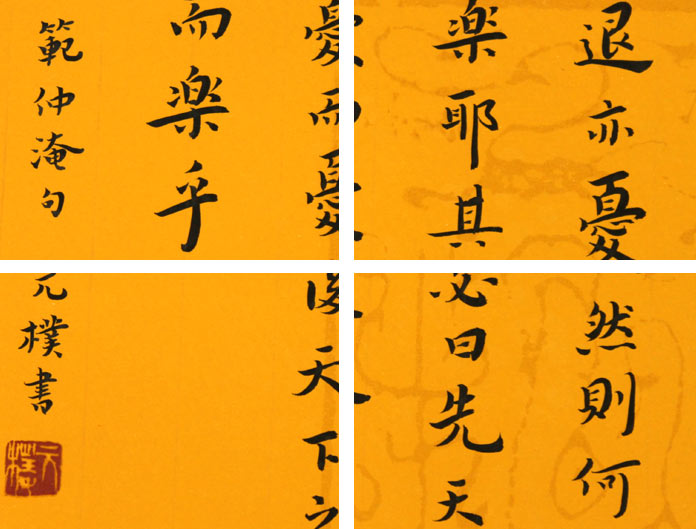 退亦憂然則何
楽耶其必曰先天
憂而憂後天下之
而楽乎
範仲淹句元樸書
元樸